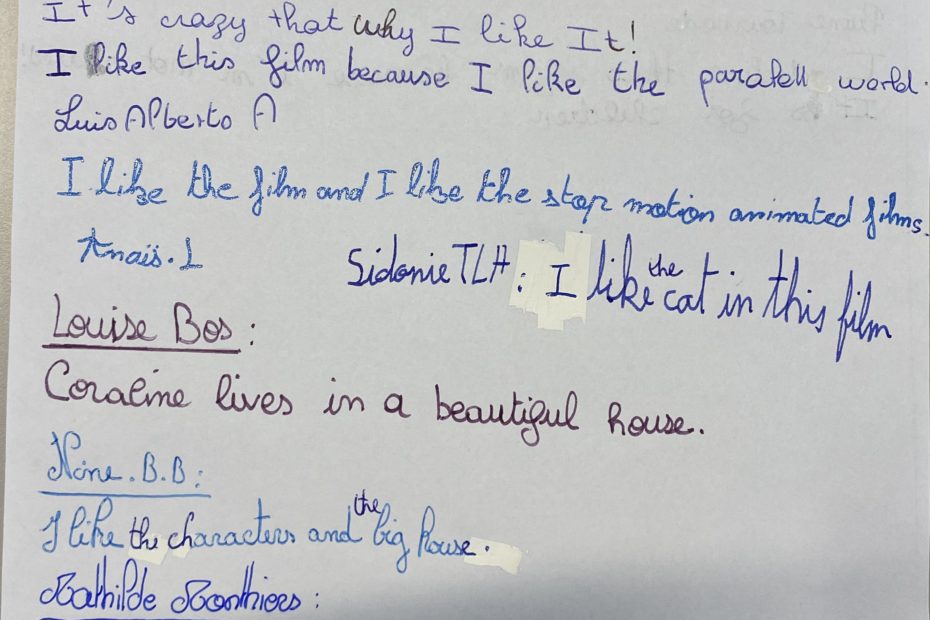 It's crazy that why I like It!
I like this film because I like the paralell world.
Luis Alberto A
I like the film and I like the stop motion animated films.
Anaïs.L
Sidonie TLH : I like the cat in this film
Louise Bos :
Coraline lives in a beautiful house.
Nine.B.B :
I like the characters and the big house.
Mathilde Monthiers :